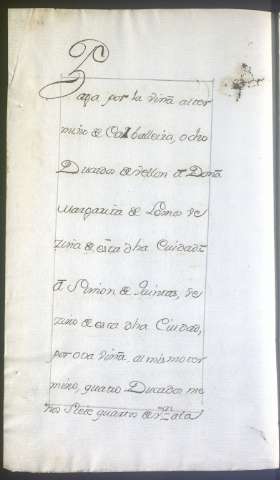 Paga por la viña al ter
mino de Carballeira, ocho
Ducados de vellon â Doña
Margarita de Lemos ve
zina de esta dha Ciudad:
â Simon de Quintas, ve
zino de esta dha Ciudad,
por otra viña, al mismo ter
mino, quatro Ducados me
nos siete quartos de